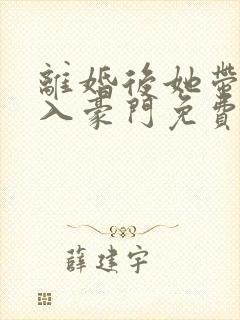 離婚後她帶
入豪門免費
薛建宇